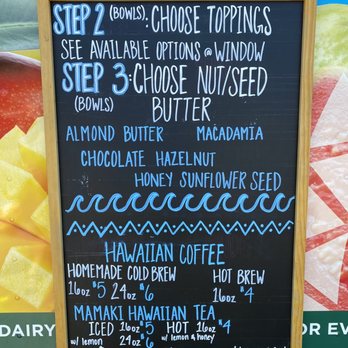 STEP 2 (BOWLS): CHOOSE TOPPINGS
SEE AVAILABLE OPTIONS @ WINDOW
STEP 3: CHOOSE NUT/SEED
(BOWLS) BUTTER
ALMOND BUTTER MACADAMIA
CHOCOLATE HAZELNUT
HONEY SUNFLOWER SEED
HAWAIIAN COFFEE
HOMEMADE COLD BREW HOT BREW
16oz $5 24oz $6 16oz $4
MAMAKI HAWAIIAN TEA
ICED 16oz $5 HOT 16oz $4
w/ lemon 24oz $6 w/ lemon & honey
DAIRY
OR EV